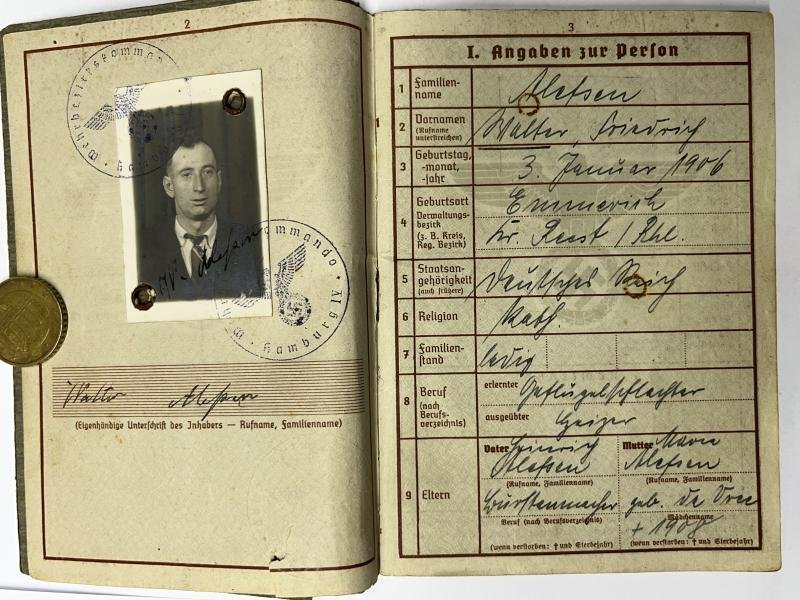 2
Wehrbezirkskommando
Wehrbezirkskommando
Hamburg IV
W. Alefsen
Walter Alefsen
(Eigenhändige Unterschrift des Inhabers — Rufname, Familienname)
3
I. Angaben zur Person
1 Familien-
name
Alefsen
2 Vornamen
(Rufname
unterstreichen)
Walter, Friedrich
3 Geburtstag,
-monat,
-jahr
3. Januar 1906
4 Geburtsort
Verwaltungs-
bezirk
(z. B. Kreis,
Reg. Bezirk)
Emmerich
Kr. Rees / Rhl.
5 Staatsan-
gehörigkeit
(auch frühere)
Deutsches Reich
6 Religion
kath.
7 Familien-
stand
ledig
8 Beruf
(nach
Berufs-
verzeichnis)
erlernter Geflügelschlachter
ausgeübter Heizer
9 Eltern
Vater Heinrich
Alefsen
(Rufname, Familienname)
Bürstenmacher
Beruf (nach Berufsverzeichnis)
(wenn verstorben: † und Sterbejahr)
Mutter Marie
Alefsen
(Rufname, Familienname)
geb. de Vree
Mädchenname
† 1908
(wenn verstorben: † und Sterbejahr)